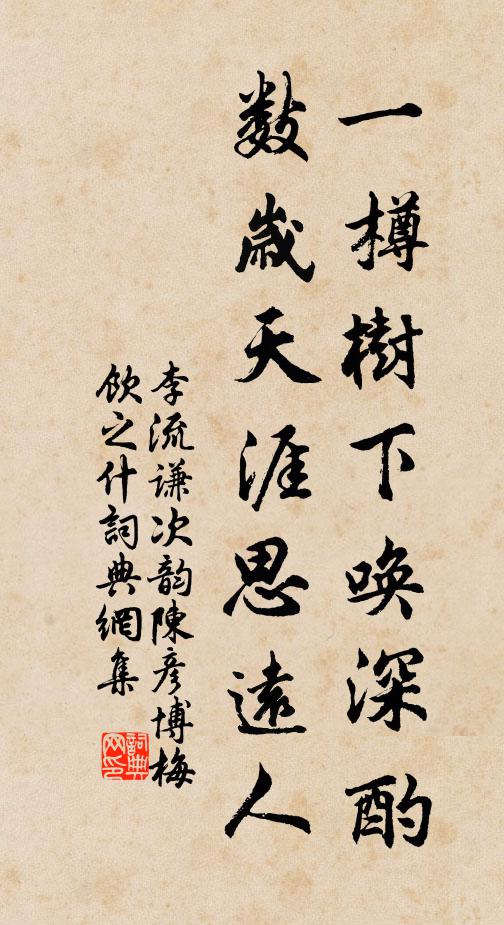 一樽樹下喚深酌
數歲天涯思遠人
李流謙次韵陳彥博梅
飲之什詞典網集
詞典
网印